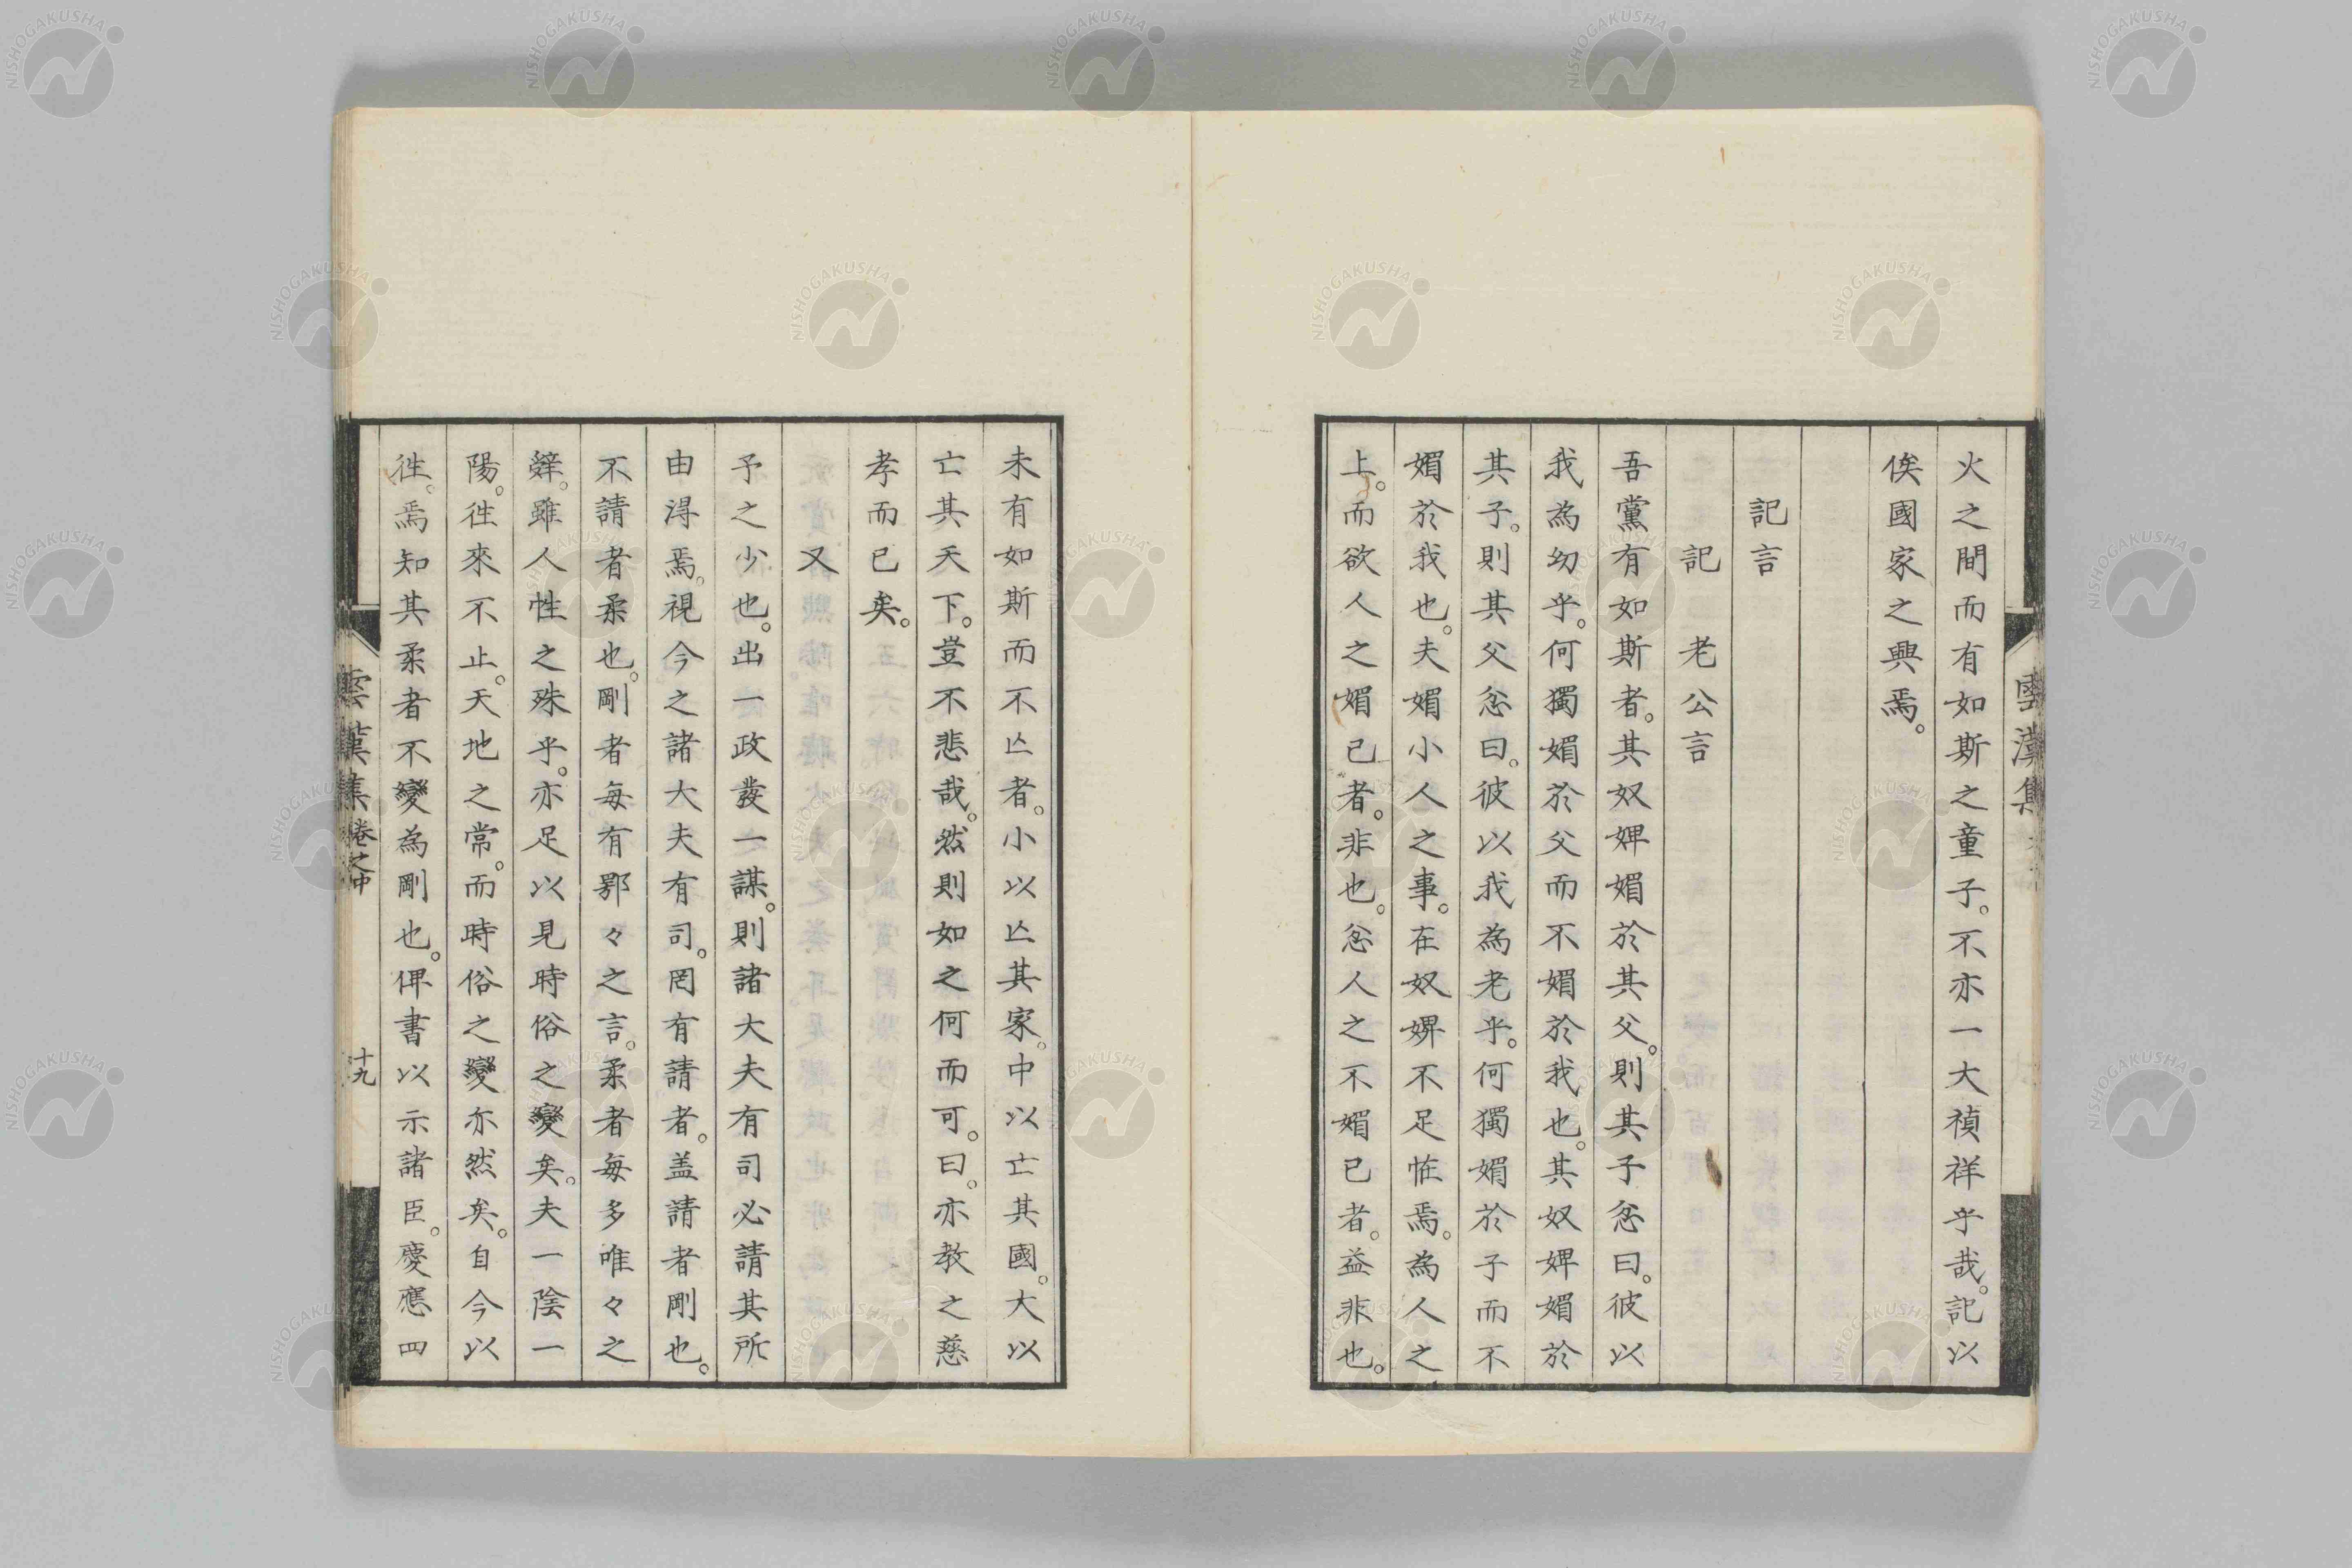 火之間而有如斯之童子。不亦一大禎祥乎哉。記以
俟國家之興焉。
記言
記 老公言
吾黨有如斯者。其奴婢媚於其父。則其子忿曰。彼以
我為幼乎。何獨媚於父而不媚於我也。其奴婢媚於
其子。則其父忿曰。彼以我為老乎。何獨媚於子而不
媚於我也。夫媚小人之事。在奴婢不足怪焉。為人之
上。而欲人之媚已者。非也。忿人之不媚已者。益非也。
未有如斯而不亾者。小以亾其家。中以亡其國。大以
亡其天下。豈不悲哉。然則如之何而可。曰。亦教之慈
孝而已矣。
又
予之少也。出一政發一謀。則諸大夫有司必請其所
由淂焉。視今之諸大夫有司。罔有請者。盖請者剛也。
不請者柔也。剛者每有鄂々之言。柔者每多唯々之
辤。雖人性之殊乎。亦足以見時俗之變矣。夫一陰一
陽。徃來不止。天地之常。而時俗之變亦然矣。自今以
徃。焉知其柔者不變為剛也。俾書以示諸臣。慶應四
雲漢集 卷之中
十九
雲漢集
NISHOGAKUSHA